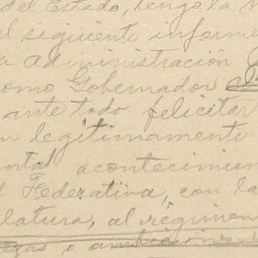 del Estado, tengo la
el siguiente informe
a Administración
como Gobernador
ante todo felicitar
legítimamente
acontecimien
Federativa, con la
latura, al régimen
o